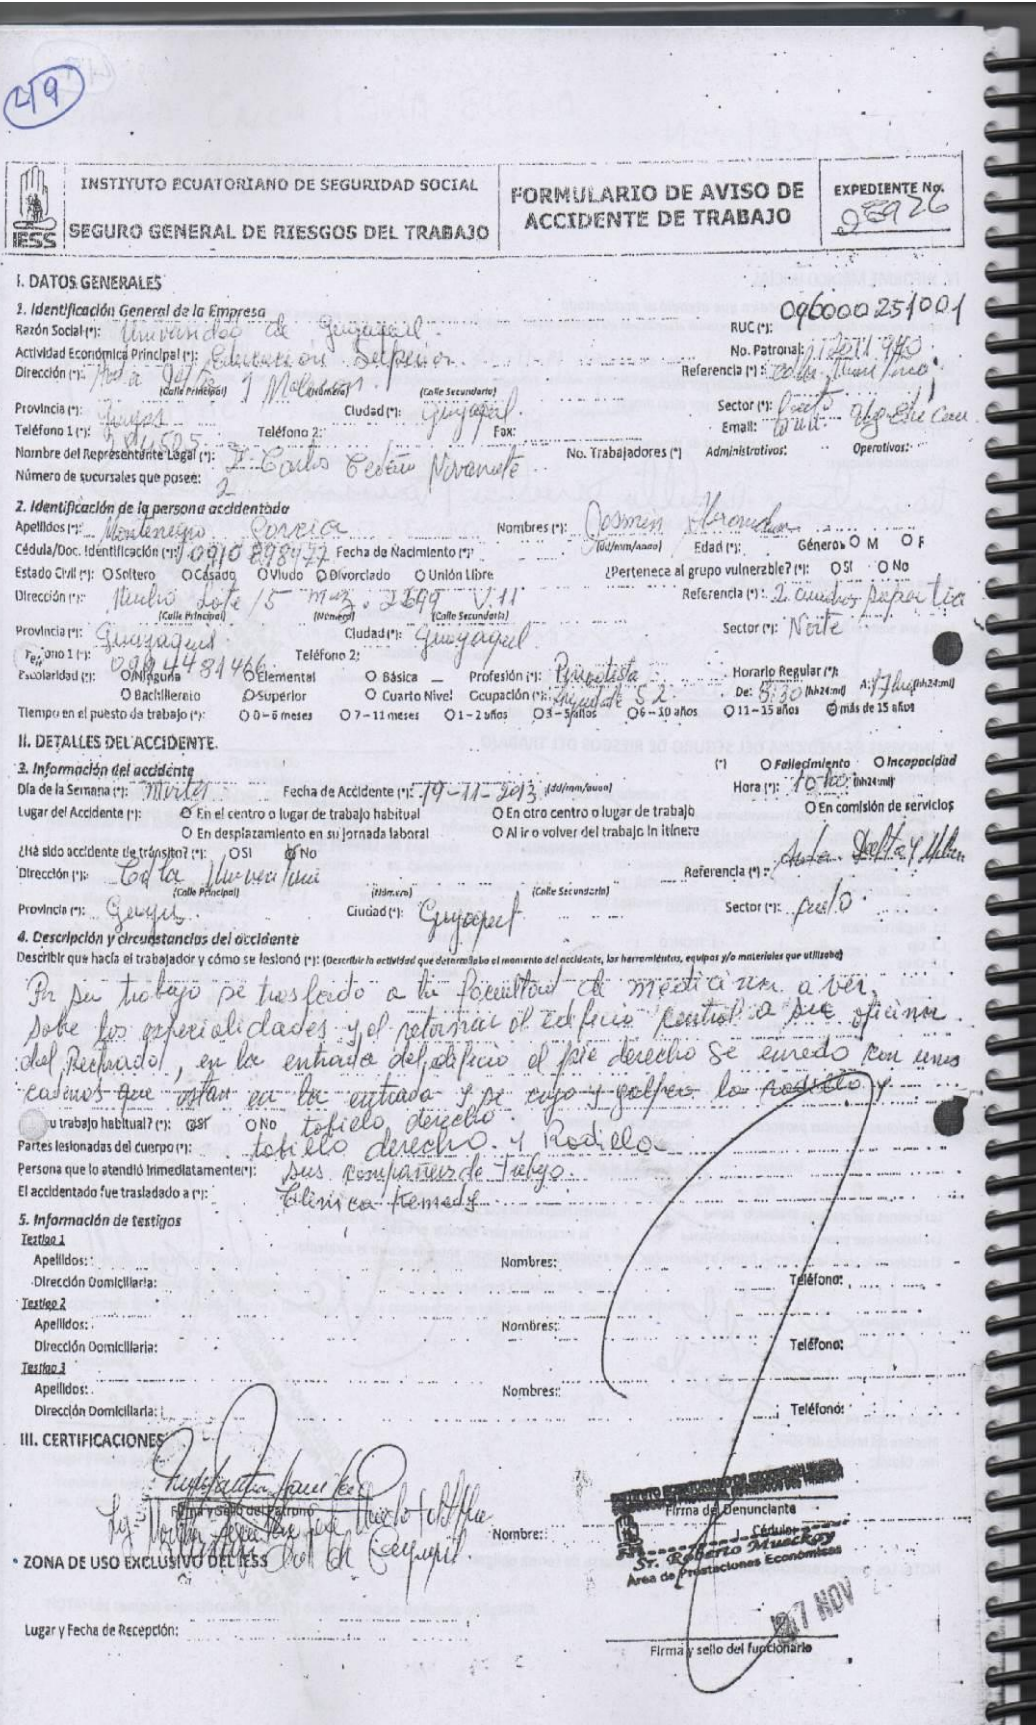 49
INSTITUTO ECUATORIANO DE SEGURIDAD SOCIAL
SEGURO GENERAL DE RIESGOS DEL TRABAJO
FORMULARIO DE AVISO DE ACCIDENTE DE TRABAJO
EXPEDIENTE No.
IESS
I. DATOS GENERALES
1. Identificación General de la Empresa
Razón Social (*): Universidad de Guayaquil RUC (*):
Actividad Económica Principal (*): Educación Superior No. Patronal:
Dirección (*): Referencia (*):
(Calle Principal) (Número) (Calle Secundaria)
Provincia (*): Guayas Ciudad (*): Guayaquil Sector (*):
Teléfono 1 (*): Teléfono 2: Fax: Email:
Nombre del Representante Legal (*): Carlos Cedeño Navarrete No. Trabajadores (*) Administrativos: Operativos:
Número de sucursales que posee: 2
2. Identificación de la persona accidentada
Apellidos (*): Montenegro Nombres (*):
Cédula/Doc. Identificación (*): Fecha de Nacimiento (*): (dd/mm/aaaa) Edad (*): Género: O M O F
Estado Civil (*): O Soltero O Casado O Viudo O Divorciado O Unión Libre ¿Pertenece al grupo vulnerable? (*): O SI O No
Dirección (*): Mucho Lote Referencia (*): 2 cuadras
(Calle Principal) (Número) (Calle Secundaria)
Provincia (*): Guayaquil Ciudad (*): Guayaquil Sector (*): Norte
Teléfono 1 (*): 0994481466 Teléfono 2:
Escolaridad (*): O Ninguna O Elemental O Básica Profesión (*): Periodista Horario Regular (*):
O Bachillerato O Superior O Cuarto Nivel Ocupación (*): De: 8:30 (hh24:mi) A: (hh24:mi)
Tiempo en el puesto de trabajo (*): O 0-6 meses O 7-11 meses O 1-2 años O 3-5 años O 6-10 años O 11-15 años O más de 15 años
II. DETALLES DEL ACCIDENTE
3. Información del accidente (*) O Fallecimiento O Incapacidad
Día de la Semana (*): Martes Fecha de Accidente (*): 19-11-2013 (dd/mm/aaaa) Hora (*): (hh24:mi)
Lugar del Accidente (*): O En el centro o lugar de trabajo habitual O En otro centro o lugar de trabajo O En comisión de servicios
O En desplazamiento en su jornada laboral O Al ir o volver del trabajo in itínere
¿Ha sido accidente de tránsito? (*): O SI O No
Dirección (*): Referencia (*):
(Calle Principal) (Número) (Calle Secundaria)
Provincia (*): Guayas Ciudad (*): Guayaquil Sector (*):
4. Descripción y circunstancias del accidente
Describir que hacía el trabajador y cómo se lesionó (*): (Describir la actividad que desarrollaba el momento del accidente, las herramientas, equipos y/o materiales que utilizaba)
Por su trabajo se traslado a la facultad de medicina a ver
sobre las especialidades y al retornar al edificio central a sus oficinas
del Rectorado, en la entrada del edificio el pie derecho se enredo con unas
cadenas que estan en la entrada y se cayo y golpeo la rodilla y
u trabajo habitual? (*): O SI O No tobillo derecho
Partes lesionadas del cuerpo (*): tobillo derecho y Rodilla
Persona que lo atendió inmediatamente (*): sus compañeros de trabajo
El accidentado fue trasladado a (*): Clinica Kennedy
5. Información de testigos
Testigo 1
Apellidos: Nombres:
Dirección Domiciliaria: Teléfono:
Testigo 2
Apellidos: Nombres:
Dirección Domiciliaria: Teléfono:
Testigo 3
Apellidos: Nombres:
Dirección Domiciliaria: Teléfono:
III. CERTIFICACIONES
Firma y Sello del Patrono Firma del Denunciante
Nombre: Cédula:
Sr. Roberto Mueckay
Area de Prestaciones Económicas
ZONA DE USO EXCLUSIVO DEL IESS
NOV
Lugar y Fecha de Recepción:
Firma y sello del funcionario